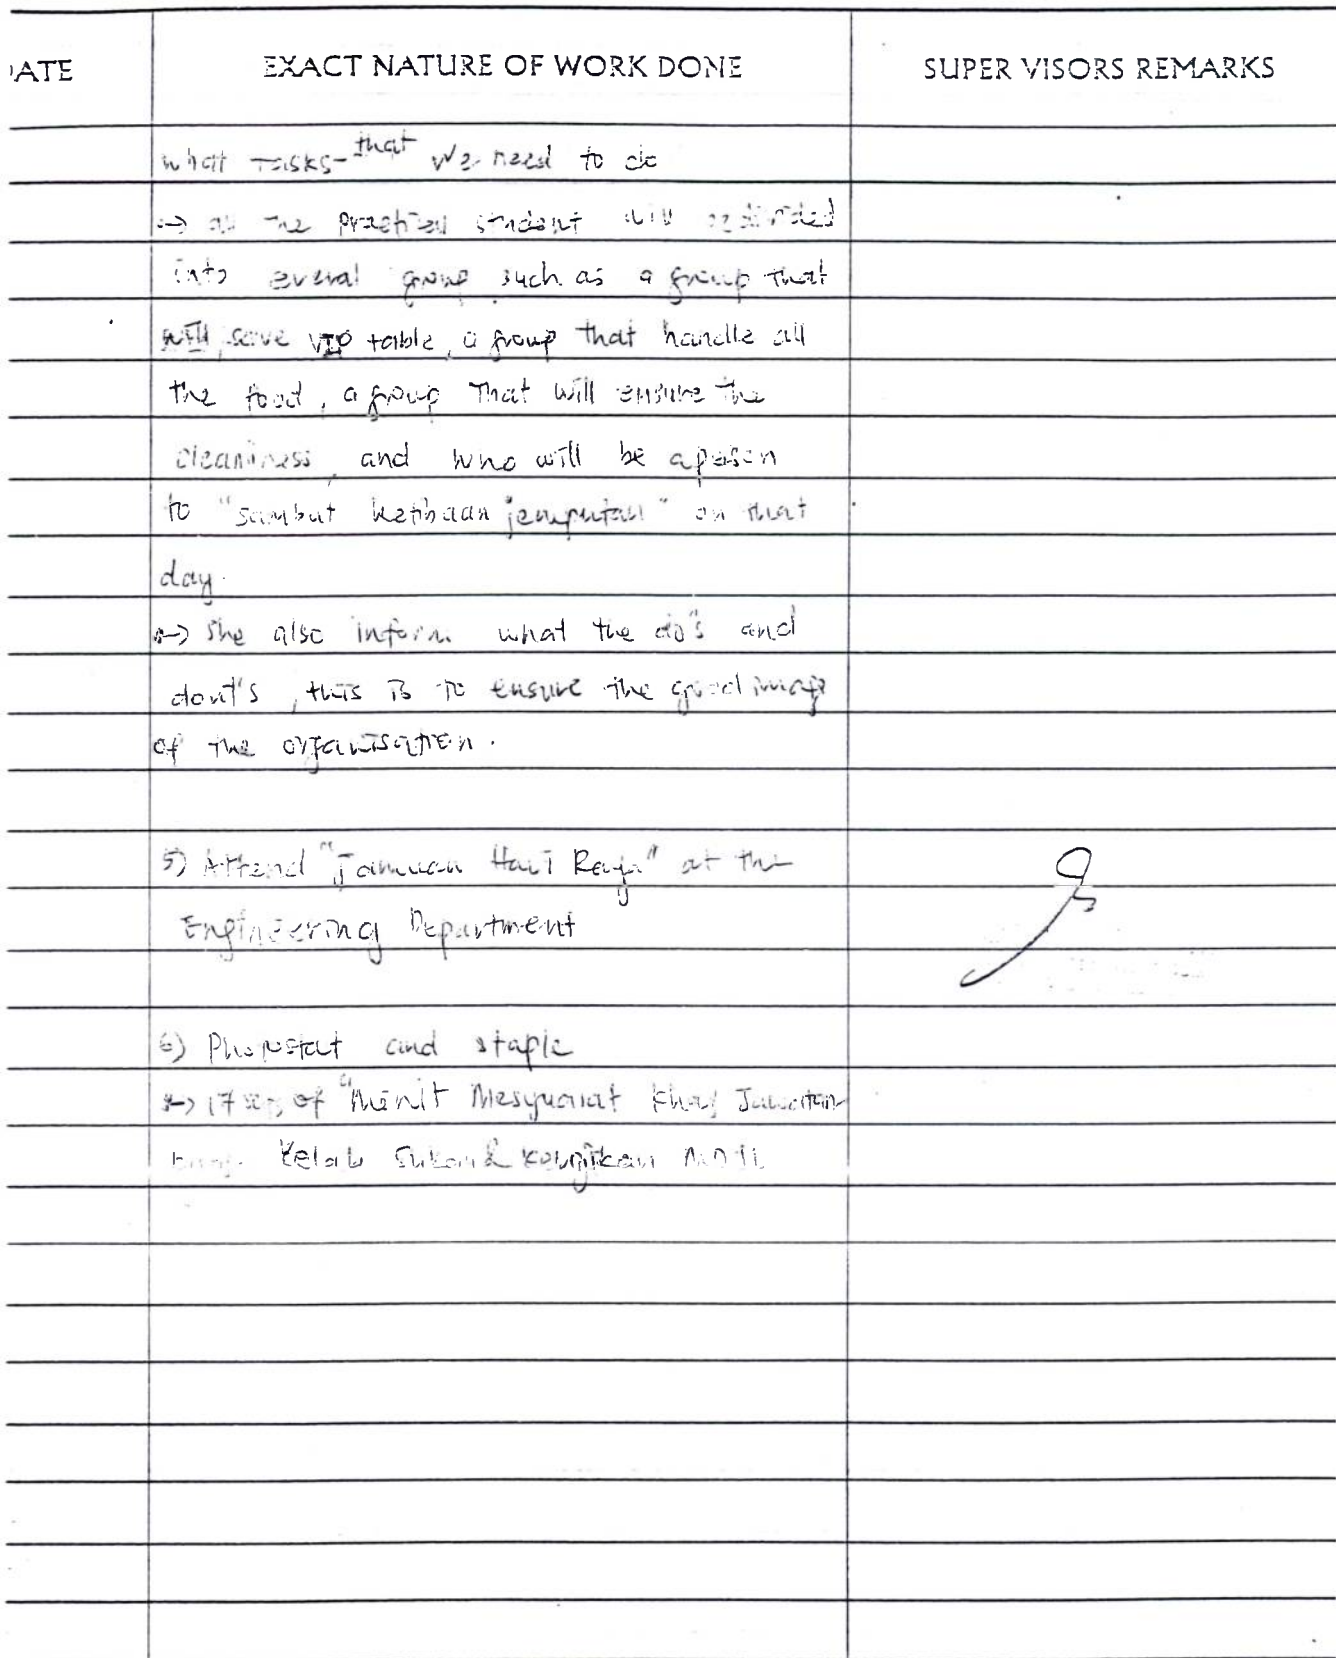 DATE EXACT NATURE OF WORK DONE SUPER VISORS REMARKS
what tasks that we need to do
→ all the practical student will be divided
into everal group such as a group that
will serve VIP table, a group that handle all
the food, a group that will ensure the
cleanliness, and who will be a person
to "sambut ketibaan jemputan" on that
day.
→ she also inform what the do's and
dont's, this is to ensure the good image
of the organisation.
5) Attend "Jamuan Hari Raya" at the
Engineering Department
6) Photostat and staple
→ 17 of "Minit Mesyuarat Khas Jawatan
Kelab Sukan & Kebajikan